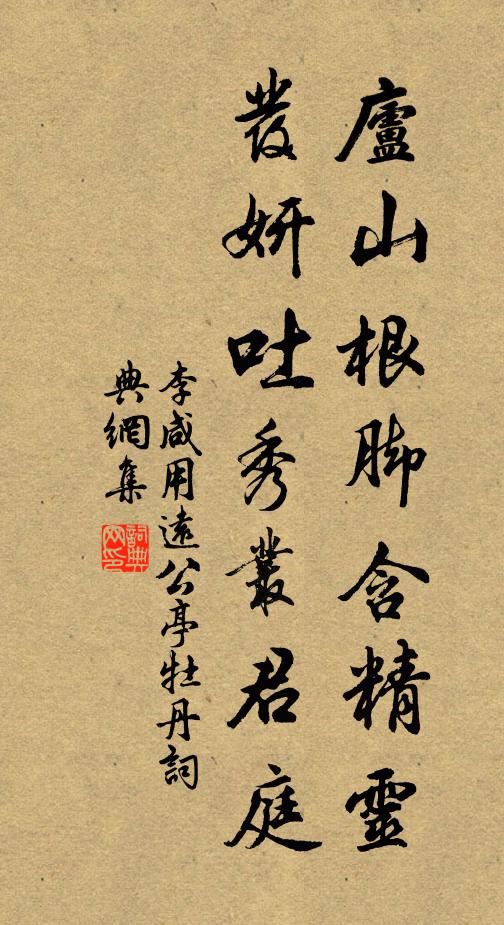 廬山根脚含精靈
發妍吐秀叢君庭
李咸用遠公亭牡丹詞
典網集
詞典
网印